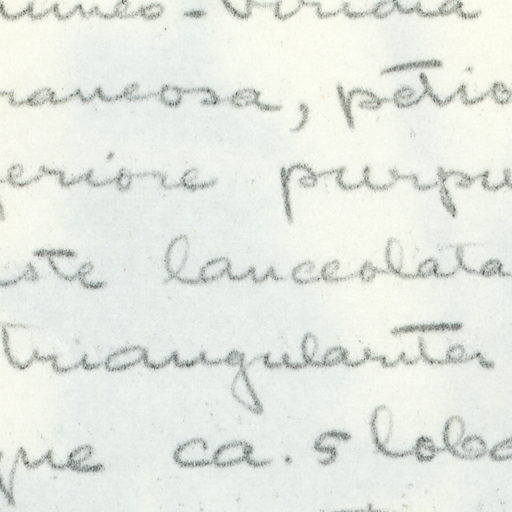 viridia
raneosa, petio
eriore purpu
ste lanceolata
triangulariter
que ca. 5 loba